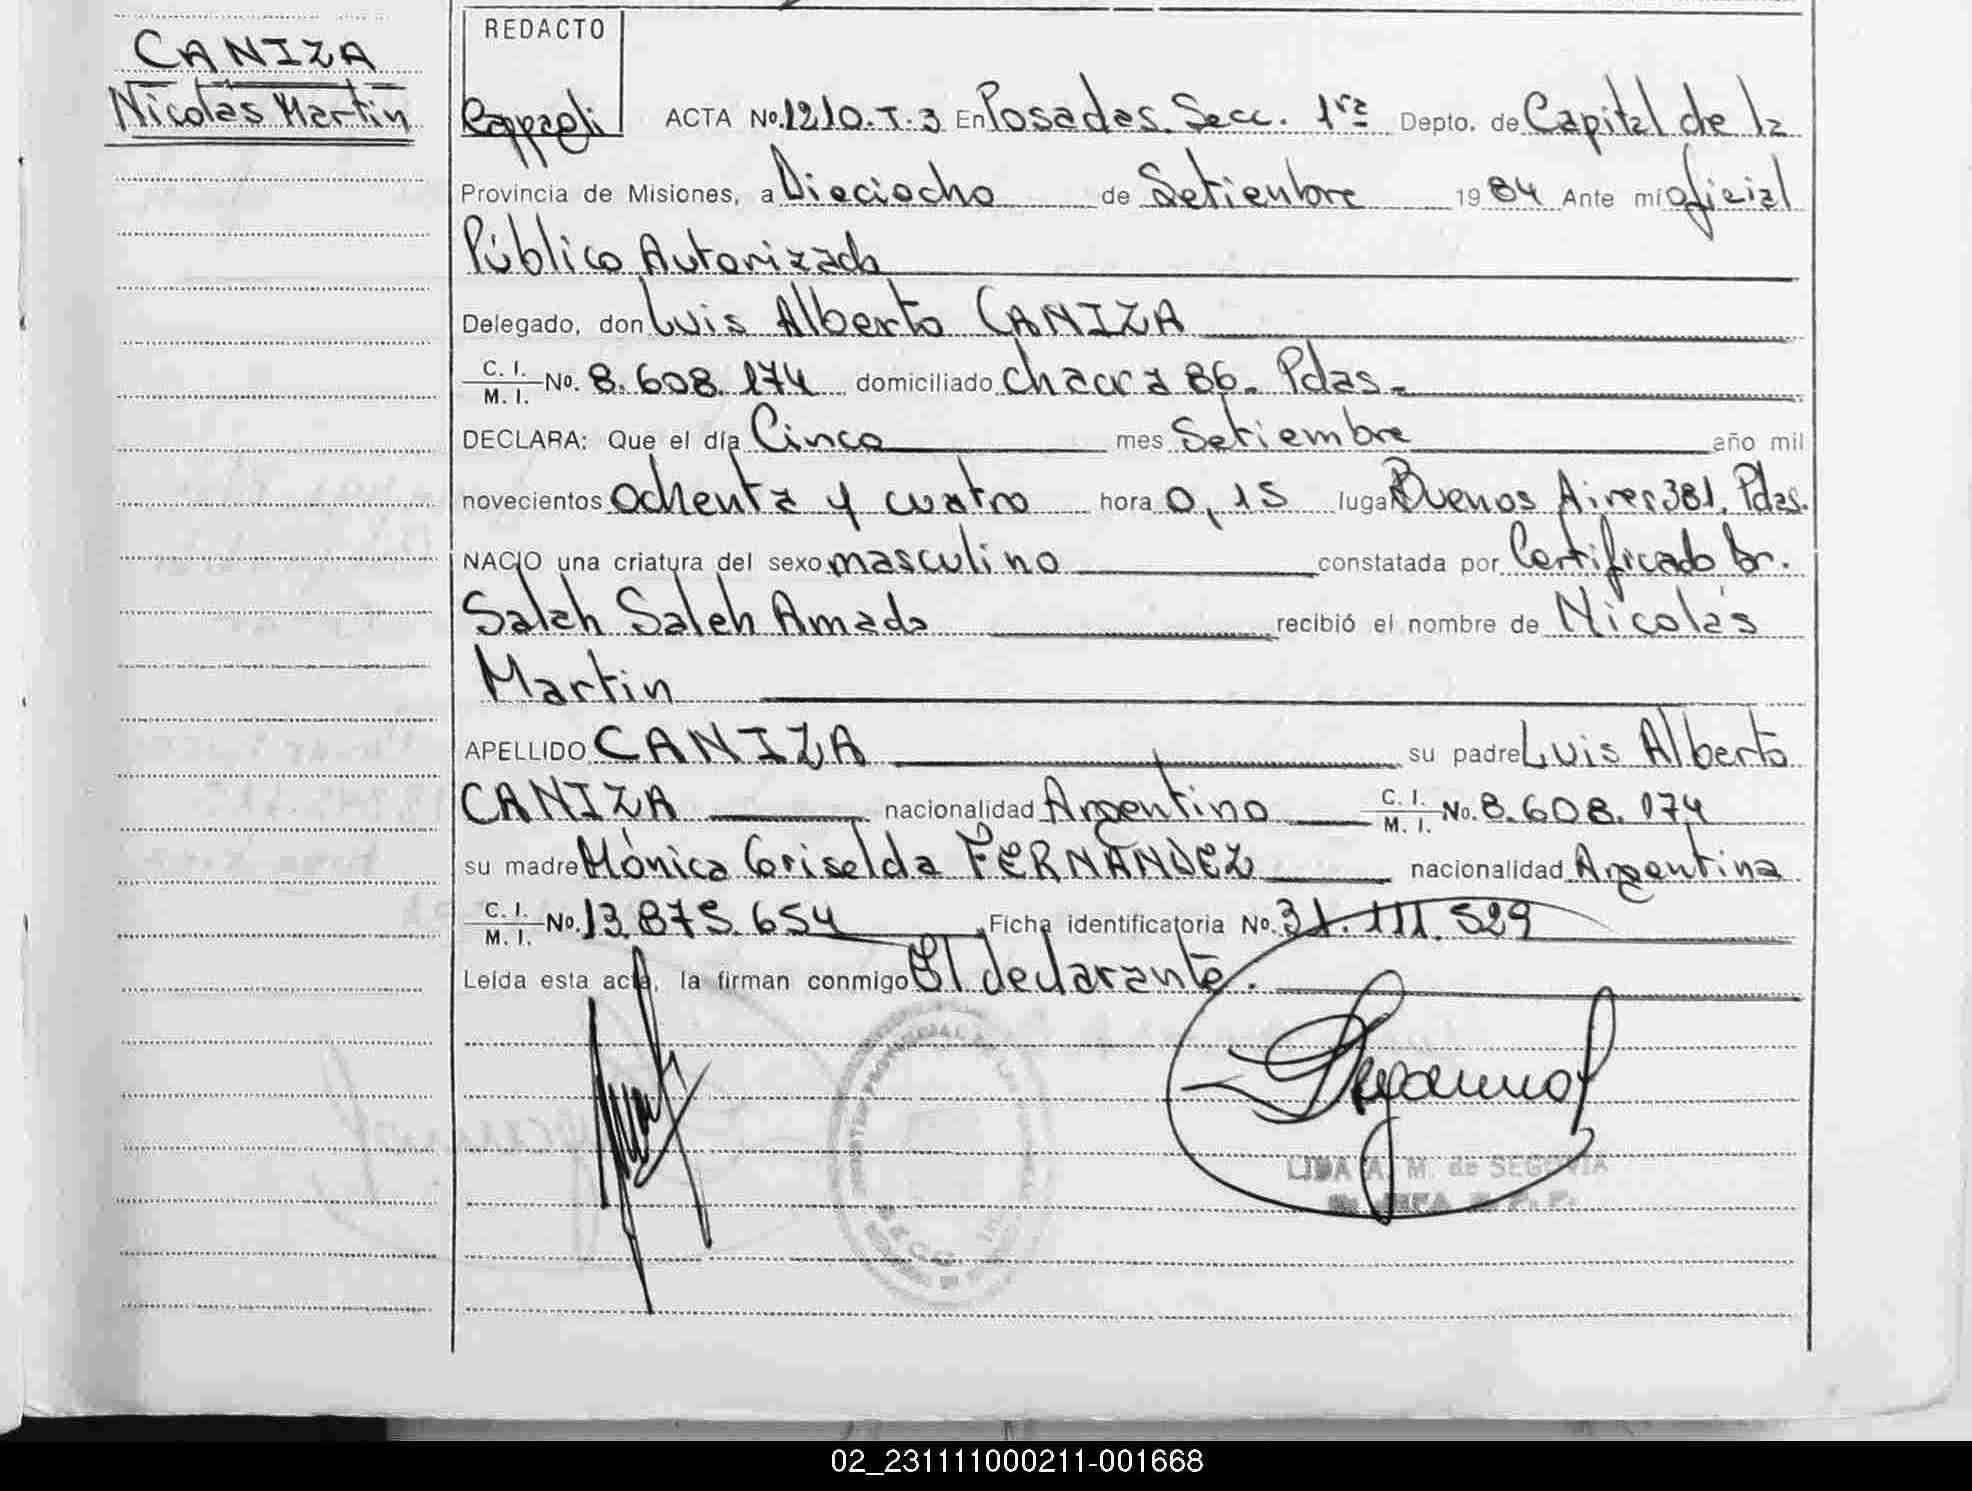 CANIZA
Nicolás Martin
REDACTO
ACTA No. 1210.T.3 En Posadas. Secc. 1ra Depto. de Capital de la
Provincia de Misiones, a Dieciocho de Setienbre 1984 Ante mi oficial
Público Autorizado
Delegado, don Luis Alberto CANIZA
C. I. M. I. No. 8.608.174 domiciliado chacra 86. Pdas.
DECLARA: Que el día Cinco mes Setiembre año mil
novecientos ochenta y cuatro hora 0,15 lugar Buenos Aires 381. Pdas.
NACIO una criatura del sexo masculino constatada por Certificado Dr.
Salah Saleh Amado recibió el nombre de Nicolás
Martin
APELLIDO CANIZA su padre Luis Alberto
CANIZA nacionalidad Argentino C. I. M. I. No. 8.608.174
su madre Mónica Griselda FERNÁNDEZ nacionalidad Argentina
C. I. M. I. No. 13.875.654 Ficha identificatoria No. 31.111.529
Leída esta acta, la firman conmigo El declarante.
LIDA A. M. de SEGOVIA
02_231111000211-001668